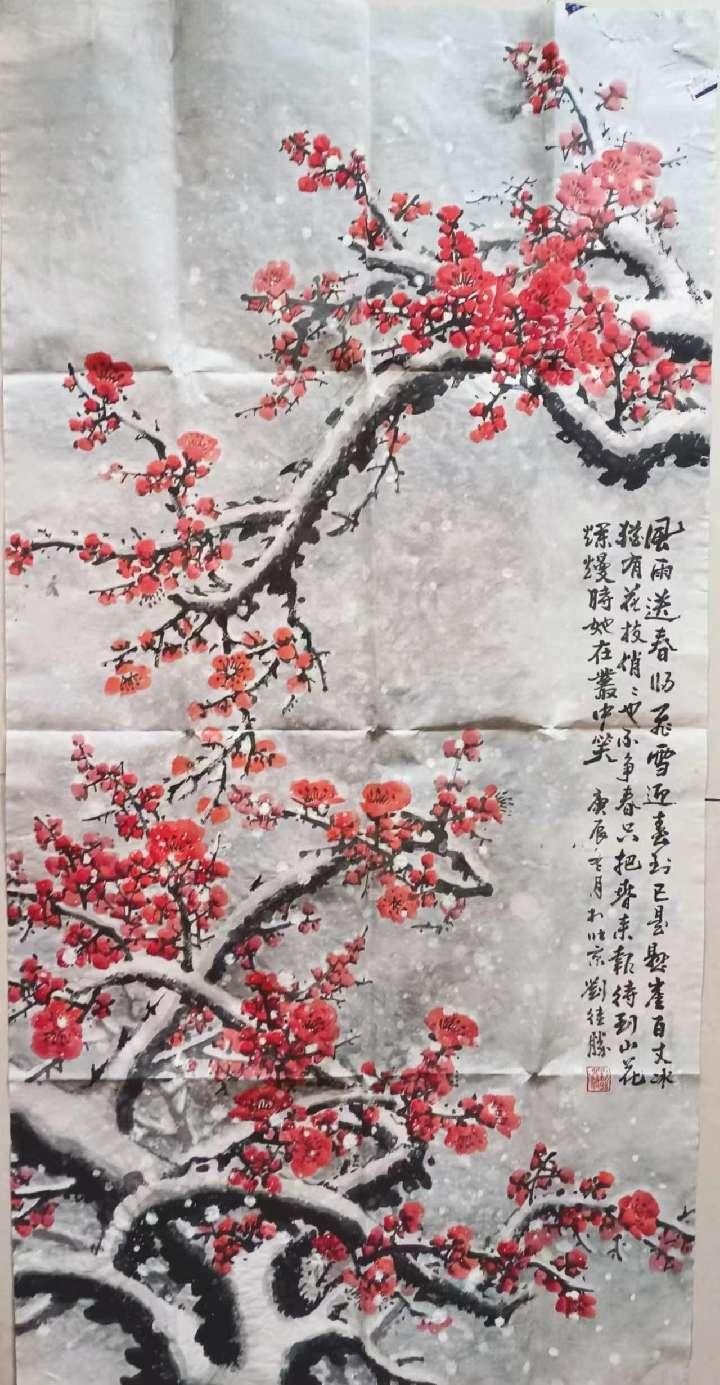 風雨送春归飛雪迎春到已是懸崖百丈冰
猶有花枝俏〻也不争春只把春来報待到山花
爛熳時她在叢中笑 庚辰冬月於北京劉勝